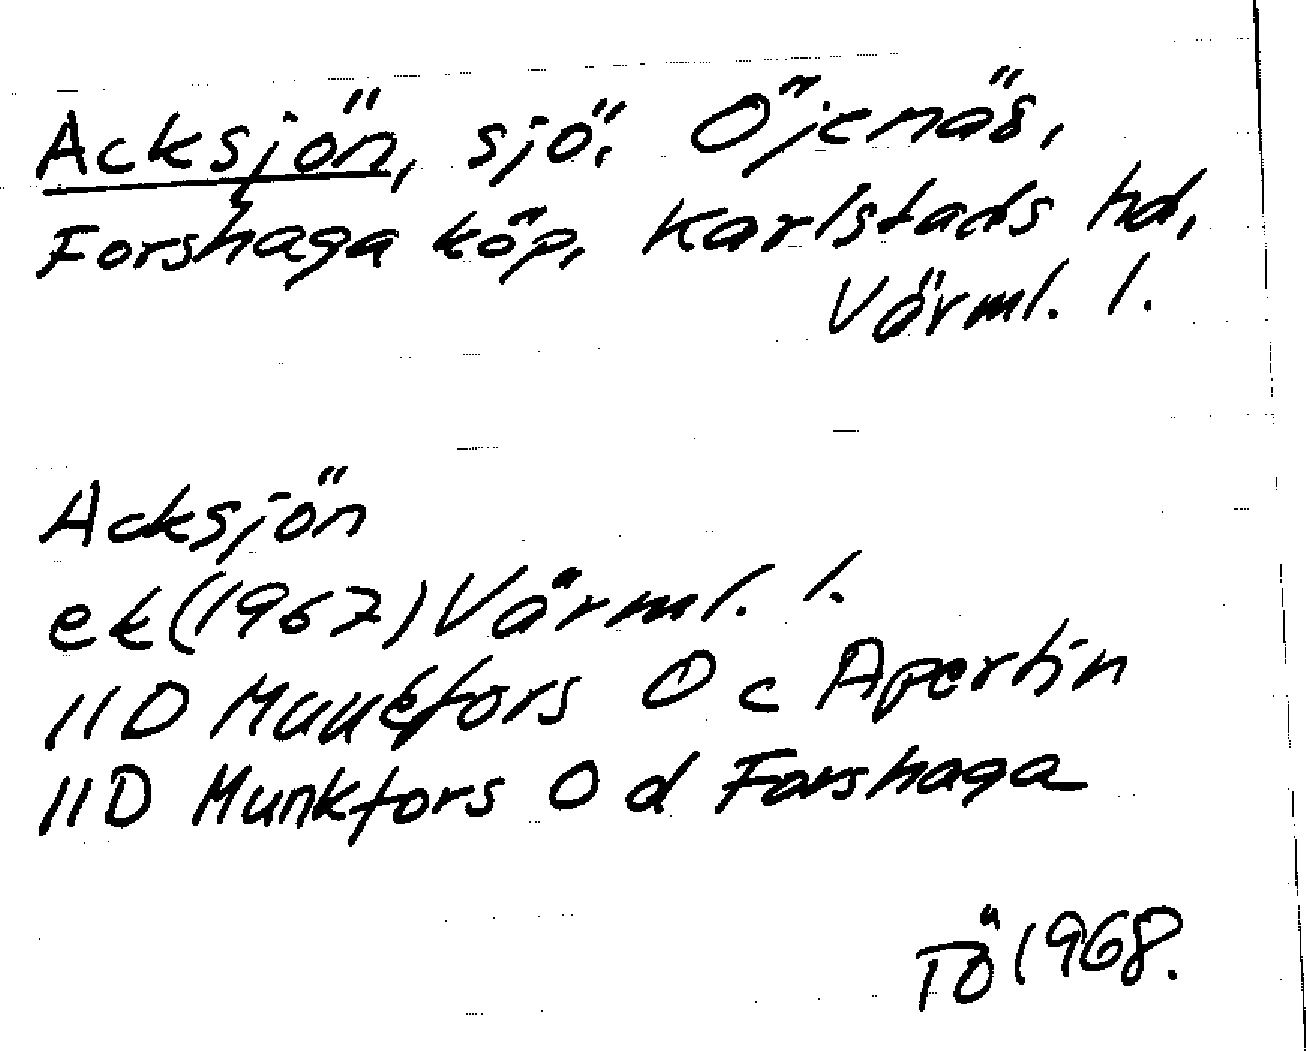 Acksjön, sjö. Öjenäs,
Forshaga köp, Karlstads hd,
Värml. l.
Acksjön
ek (1967) Värml. l.
11D Munkfors O c Apertin
11D Munkfors O d Forshaga
TÖ 1968.